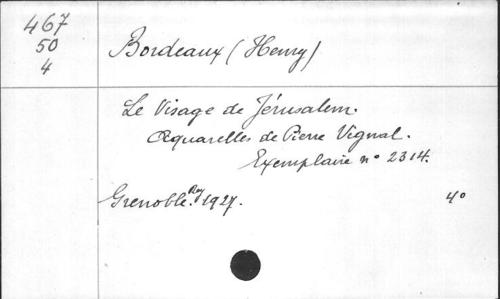 467
50
4
Bordeaux (Henry)
Le Visage de Jérusalem.
Aquarelles de Pierre Vignal.
Exemplaire nº 2314.
Grenoble. Rey 1927.
4º